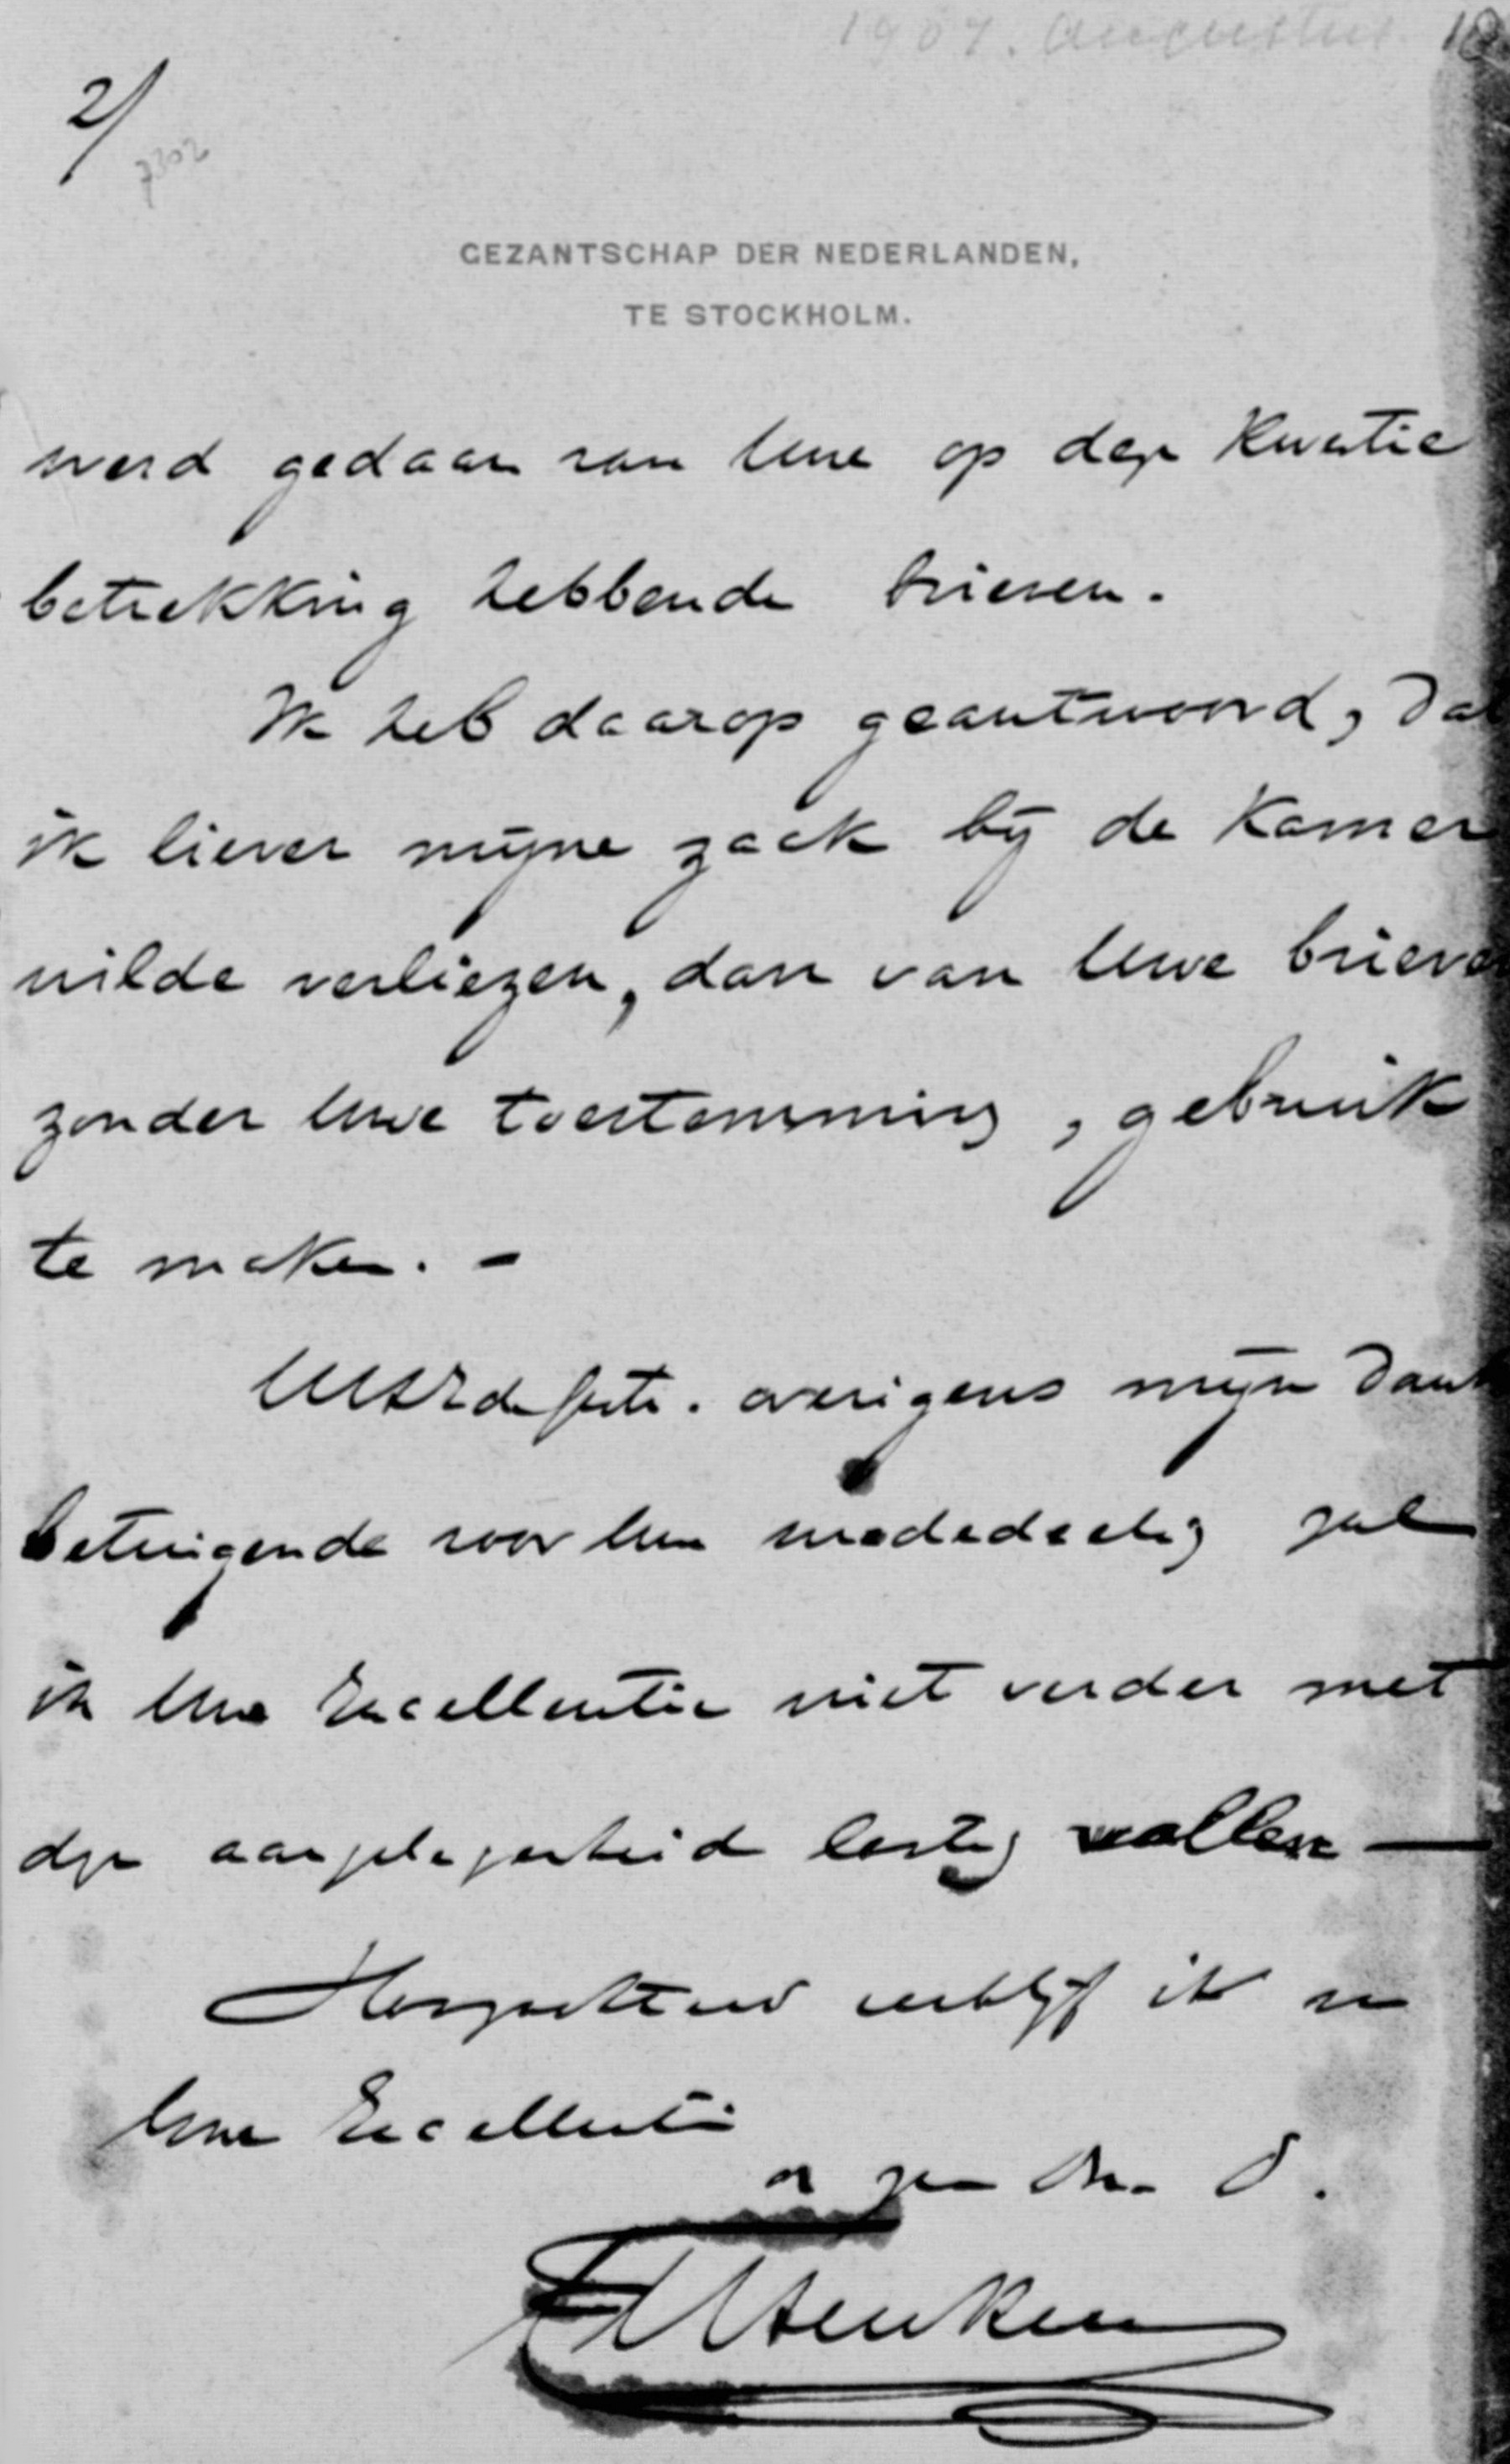 1907. Augustus 18
2/
7302
GEZANTSCHAP DER NEDERLANDEN,
TE STOCKHOLM.
werd gedaan van Uwe op deze kwestie
betrekking hebbende brieven.
Ik heb daarop geantwoord, dat
ik liever mijne zaak bij de Kamer
wilde verliezen, dan van Uwe brieven
zonder Uwe toestemming, gebruik
te maken. -
overigens mijn dank
betuigende voor Uwe mededeeling zal
ik Uwe Excellentie niet verder met
deze aangelegenheid lastig vallen —
Hoogachtend verblijf ik van
Uwe Excellentie